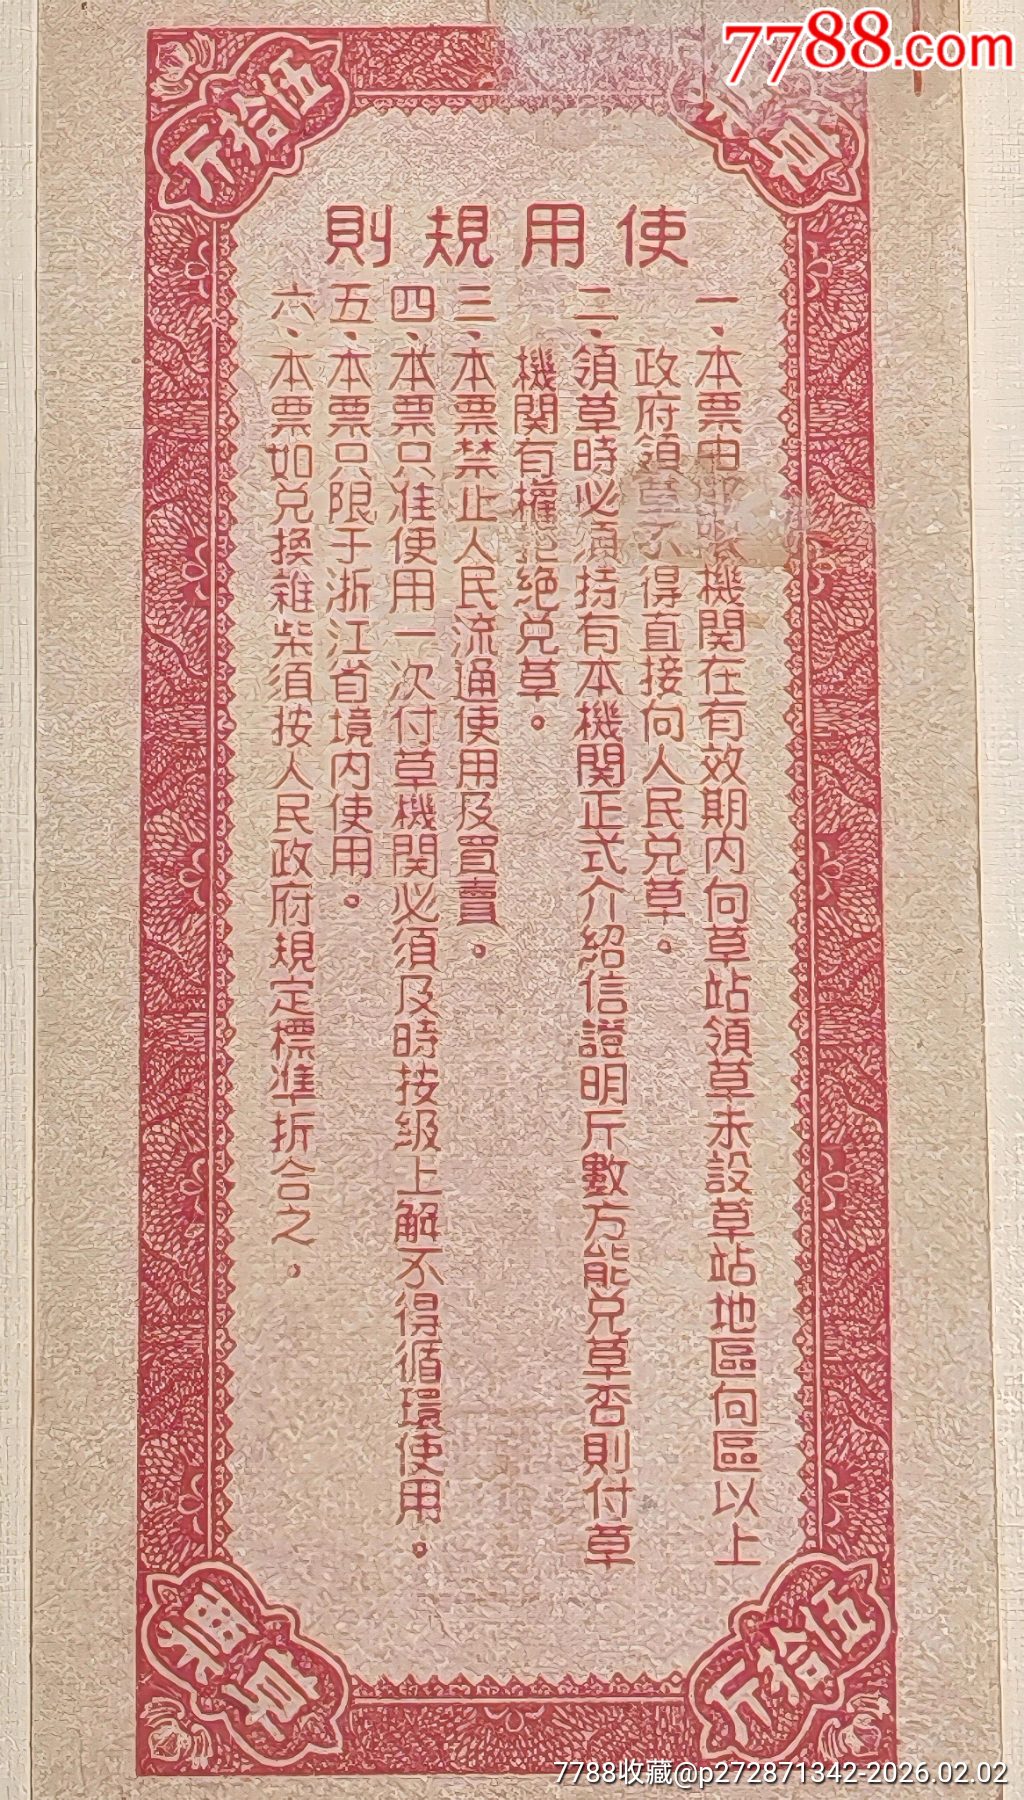 7788.com
伍拾斤
草
使用規則
一、本票由機關在有效期内向草站領草未設草站地區向區以上
政府領草不得直接向人民兌草。
二、領草時必須持有本機關正式介紹信證明斤數方能兌草否則付草
機關有權拒絕兌草。
三、本票禁止人民流通使用及買賣。
四、本票只准使用一次付草機關必須及時按級上解不得循環使用。
五、本票只限于浙江省境内使用。
六、本票如兌換雜柴須按人民政府規定標準折合之。
草
伍拾斤
7788收藏@p272871342-2026.02.02